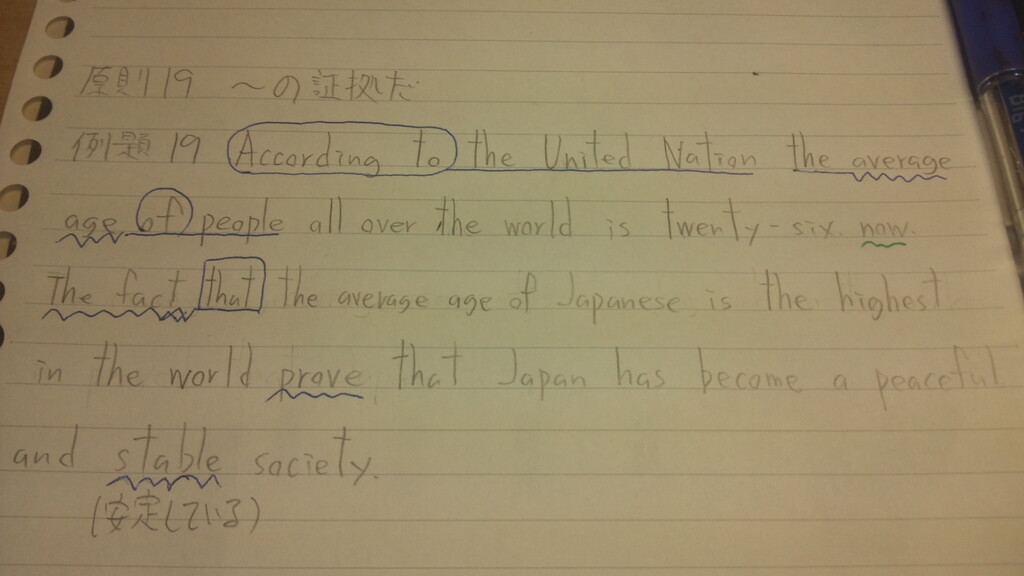 原則19 〜の証拠だ
例題19 According to the United Nation the average
age of people all over the world is twenty-six now.
The fact that the average age of Japanese is the highest
in the world prove that Japan has become a peaceful
and stable society.
(安定している)